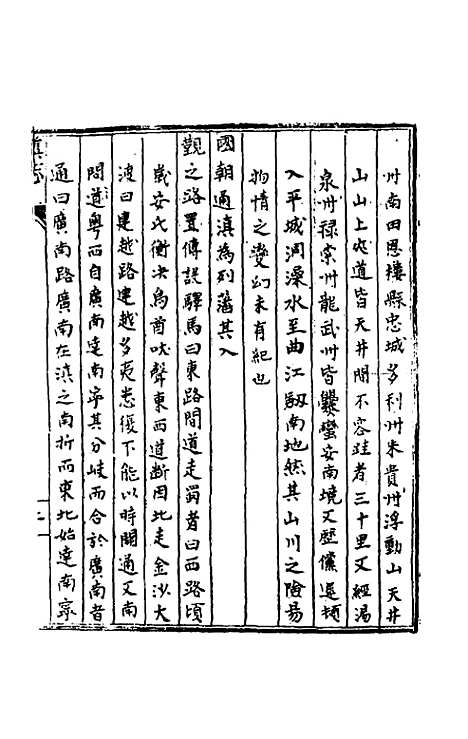 州南田恩樓縣忠城多利州朱貴州浮動山天井
山山上夾道皆天井間不容跬者三十里又經湯
泉州祿索州龍武州皆爨蠻安南境又歷儻遲頓
入平城洞澡水至曲江劔南地然其山川之險易
物情之變幻未有紀也
國朝通滇為列藩其入
覲之路置傳設驛焉曰東路間道走蜀者曰西路頃
歲安氏衡決烏酋吠聲東西道斷因北走金沙大
渡曰建越路建越多夷患復不能以時開通又南
問道粵西自廣南達南寧其分岐而合於廣南者
通曰廣南路廣南在滇之南折而東北始達南寧
滇志